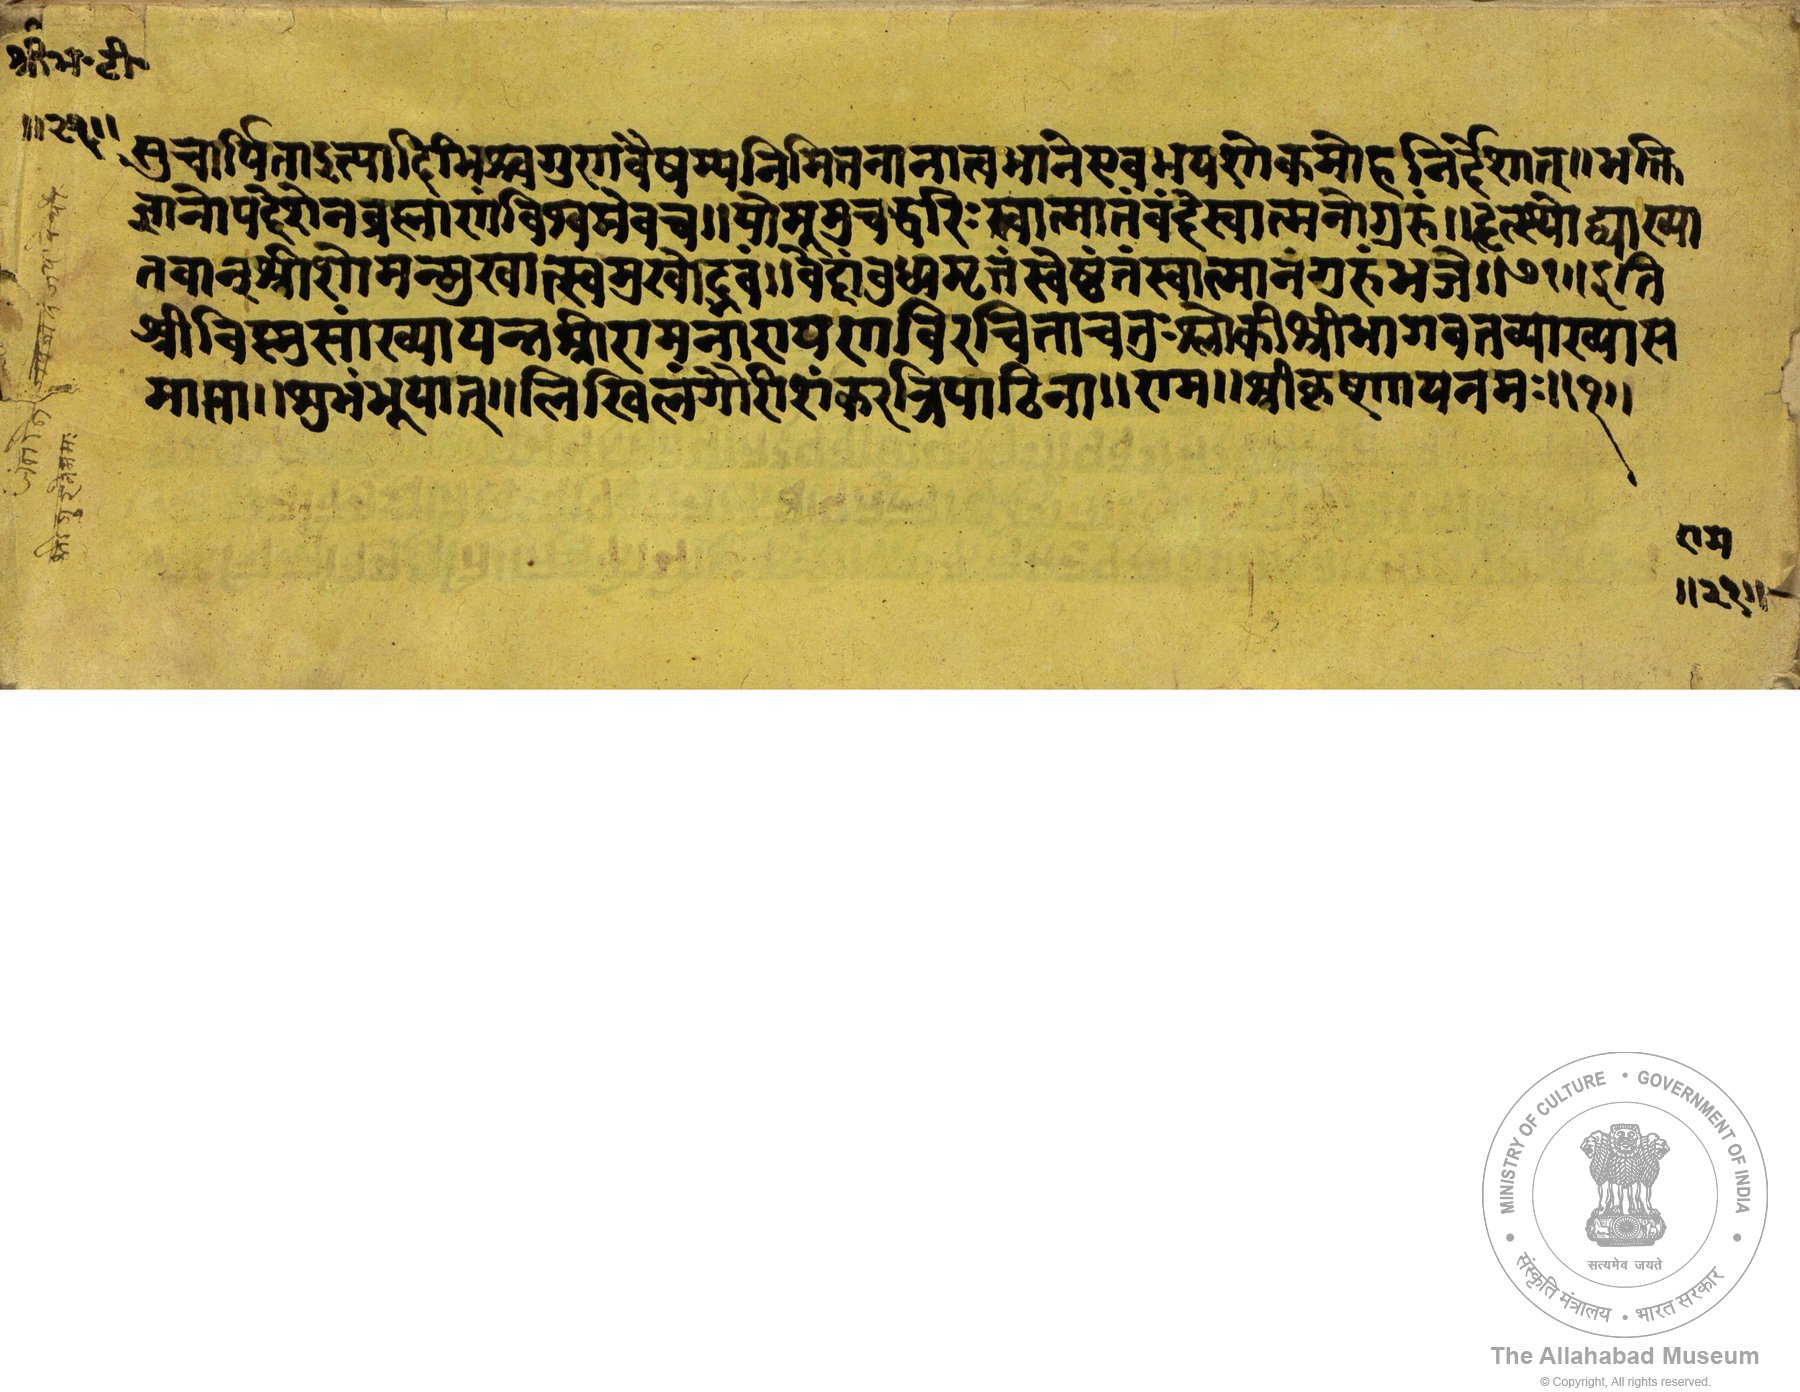 श्रीभा·टी·
॥२१॥
सुचार्पिताइत्यादिभिश्चगुणवैषम्यनिमितनानात्वभानेएवभयशोकमोहनिर्देशात्॥भक्ति
ज्ञानोपदेशेनब्रह्माणंविश्वमेवच॥योमूमुचद्धरिःस्वात्मातंवंदेस्वात्मनोगुरुं॥हृत्स्थोद्व्याख्या
तवान्श्रीशोमन्मुखात्स्वमुखोद्भवं॥
तंस्वात्मानंगुरुंभजे॥७१॥इति
श्रीविष्णुसांख्यायन्तश्रीरामनारायणविरचिताचतुःश्लोकीश्रीभागवतव्याख्यास
माप्ता॥शुभंभूयात्॥लिखिलंगौरीशंकरत्रिपाठिना॥राम॥श्रीकृष्णायनमः॥१॥
राम
॥२१॥
MINISTRY OF CULTURE • GOVERNMENT OF INDIA
सत्यमेव जयते
संस्कृति मंत्रालय • भारत सरकार
The Allahabad Museum
© Copyright, All rights reserved.